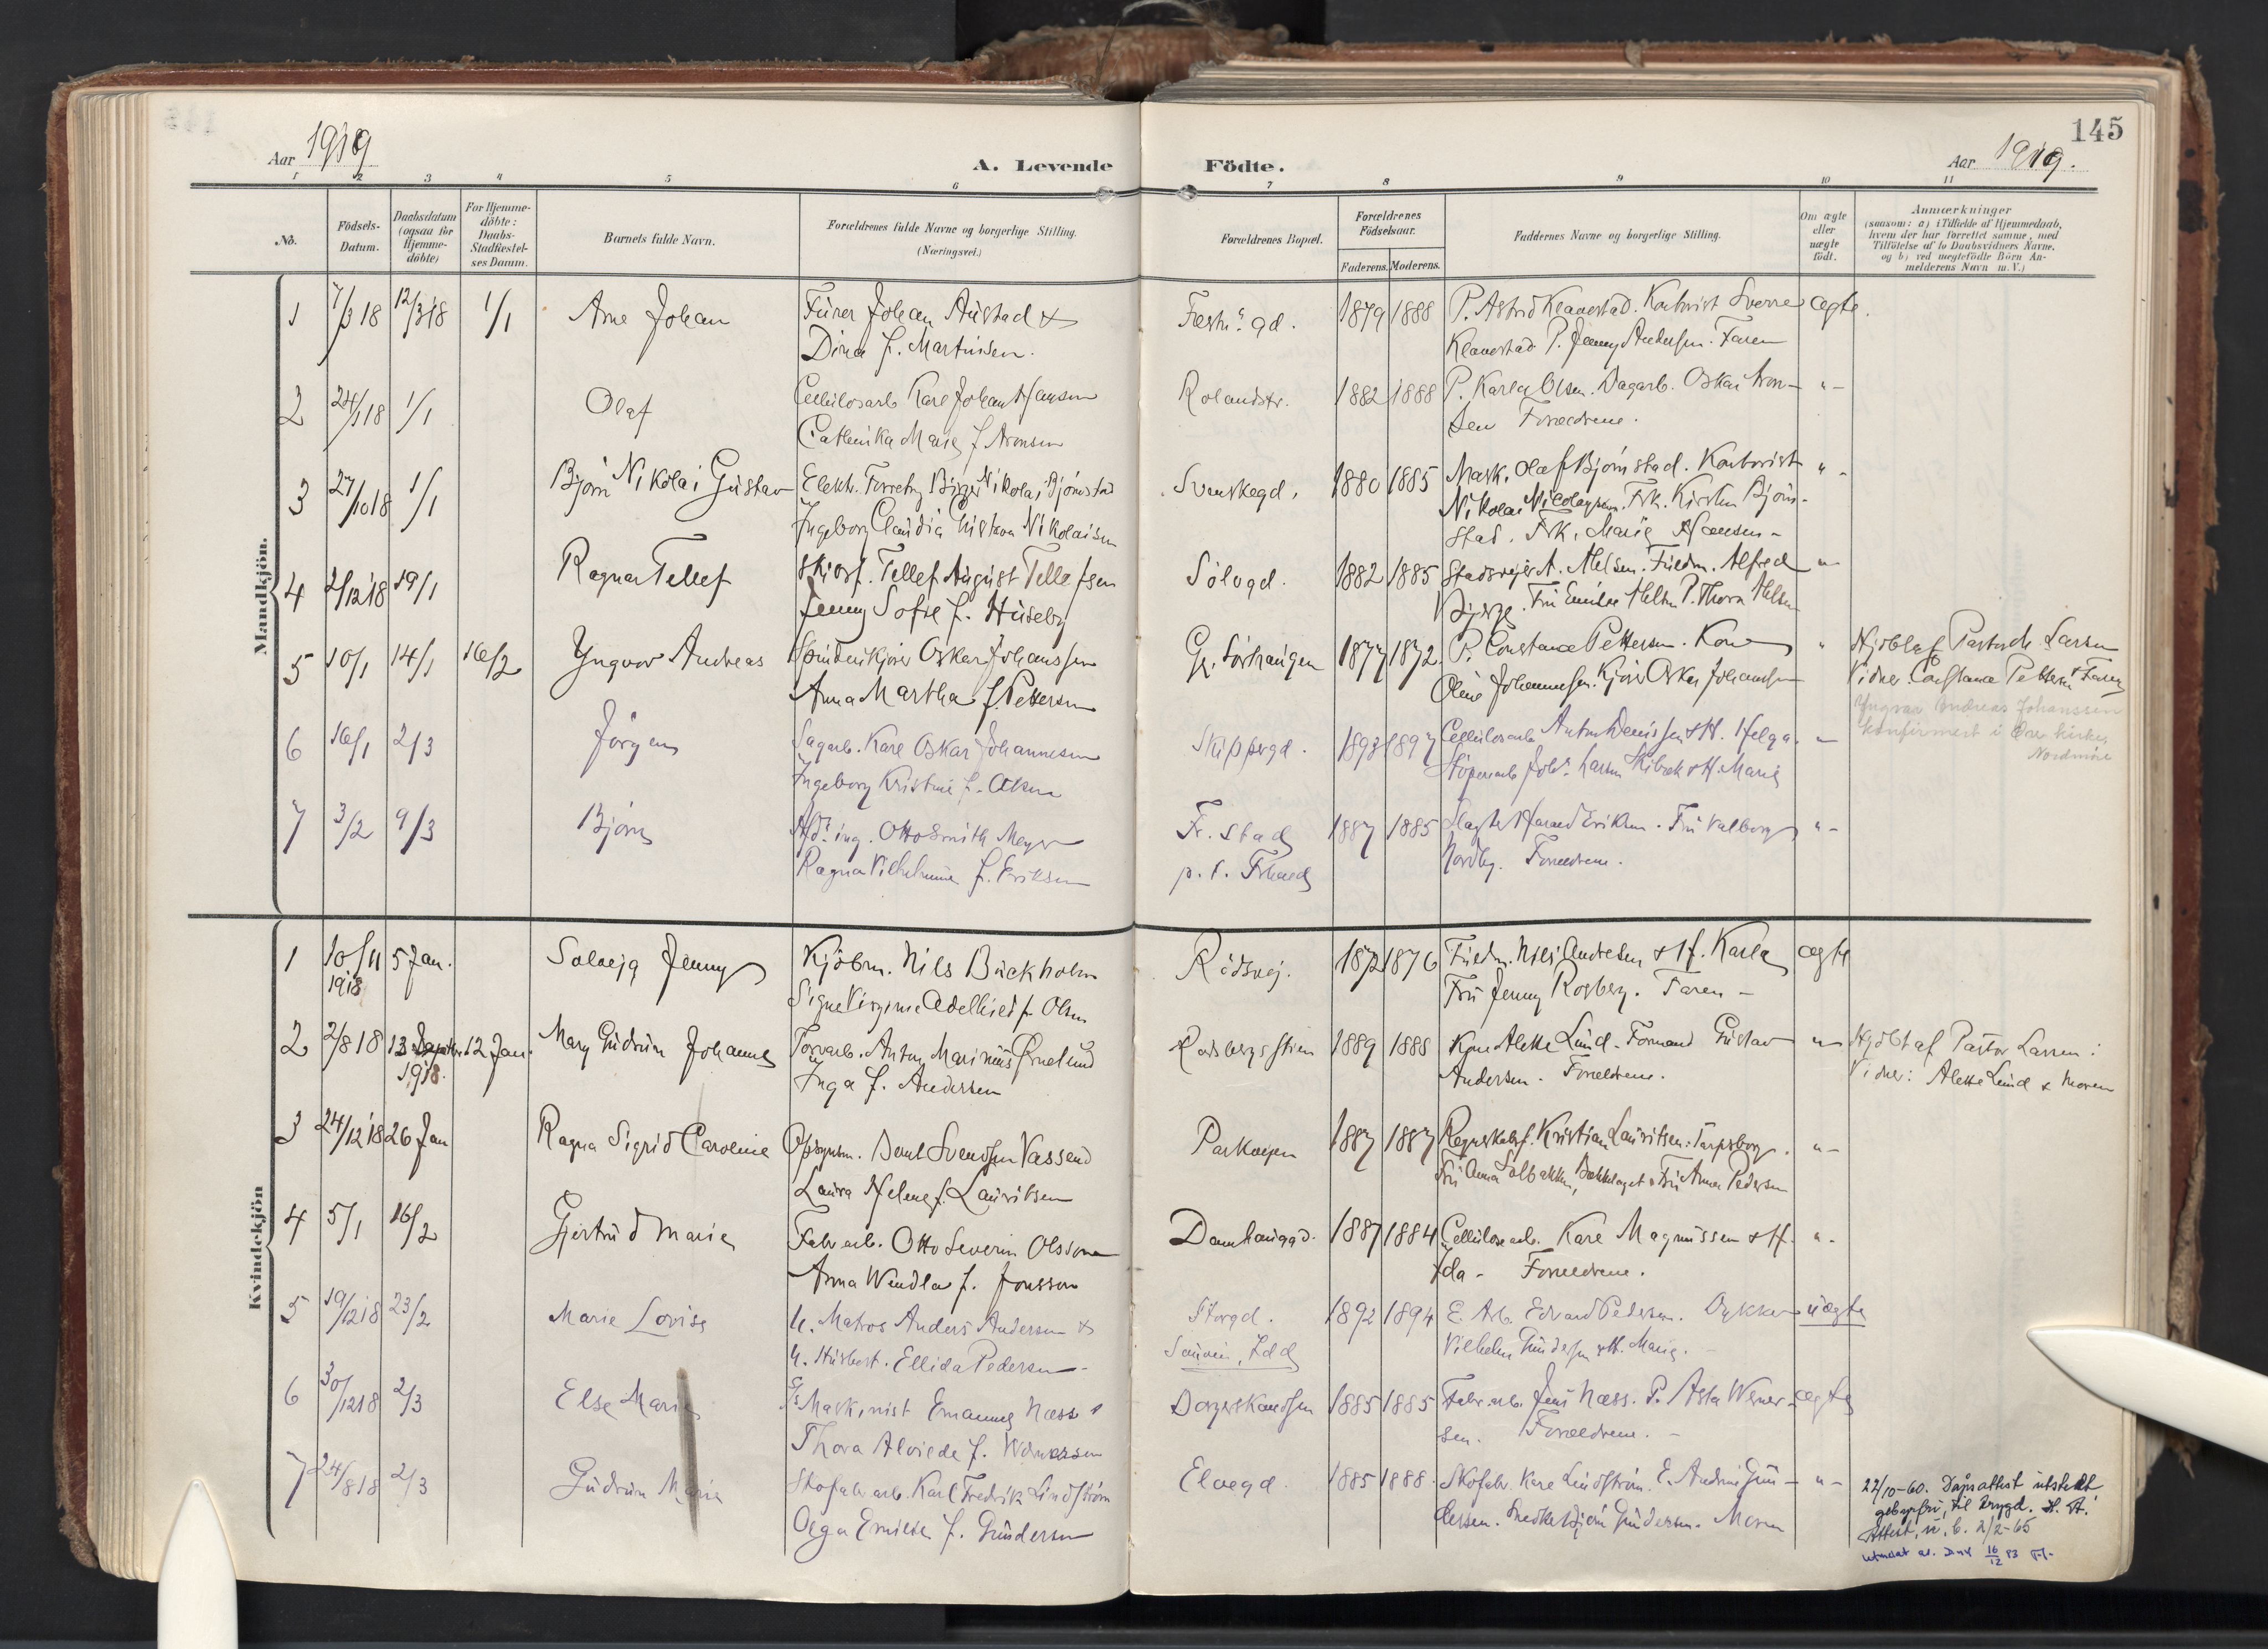 145
Aar 1919
A. Levende Födte.
Aar 1919.
1 2 3 4 5 6 7 8 9 10 11
No.
Födsels-
Datum.
Daabsdatum
(ogsaa for
Hjemme-
döbte)
For Hjemme-
döbte:
Daabs-
Stadfæstel-
ses Datum.
Barnets fulde Navn.
Forældrenes fulde Navne og borgerlige Stilling.
(Næringsvei.)
Forældrenes Bopæl.
Forældrenes
Födselsaar.
Faderens. Moderens.
Faddernes Navne og borgerlige Stilling.
Om ægte
eller
uægte
födt.
Anmærkninger
(saasom: a) i Tilfælde af Hjemmedaab,
hvem der har forrettet samme, med
Tilföielse af to Daabsvidners Navne.
og b) ved uægtefödte Börn An-
melderens Navn m. V.)
Mandkjön.
1 7/3 18 12/3 18 1/1 Arne Johan
Fürer Johan Austad &
Dina f. Martinsen.
Fæstn.s gd. 1879 1888
P. Astrid Klavestad. Kontorist Sverre ægte.
Klavestad P. Jenny Andersen. Faren
2 24/1 18 1/1 Olaf
Cellulosearb Karl Johan Hansen
Cathenika Marie f. Aronsen
Rolandstr. 1882 1888
P. Karla Olsen. Dagarb. Oskar Aron- " -
sen Forældrene.
3 27/10 18 1/1 Björn Nikolai Gustav
Elektr. Forretn Birger Nikolai Björnstad
Ingeborg Claudia Gustava Nikolaisen
Svenskegd. 1880 1885
Mask. Olaf Björnstad. Kontorist " -
Nikolai Nicolaysen. Frk. Kirsten Björn-
stad. Frk. Marie Hansen -
4 2/12 18 19/1 Ragnar Tellef
Skiosf. Tellef August Tellefsen
Jenny Sofie f. Huseby
Sölvgd. 1882 1885
Stadsveier A. Nelsen. Fuldm. Alfred " -
Bjerge. Fru Emilie Nelsen P. Thora Nelsen
5 10/1 14/1 16/2 Yngvar Andreas
Oskar Johanssen
Anna Martha f. Pettersen
Gr. Sörhaugen 1877 1872.
P. Constance Pettersen. Kone "
Oline Johannessen. Kjörer Oskar Johanssen
Hjdbt af Pastor Larsen
Vidner. Constance Pettersen & Faren
Yngvar Andreas Johanssen
konfirmert i Öre kirke,
Nordmöre
6 16/1 2/3 Jörgen
Sagarb. Karl Oskar Johannesen
Ingeborg Kristine f. Olsen
Skippergd. 1893 1897
Cellulosearb Anton Denissen & H. Helga. " -
Stöperiarb Johs. Larsen Skibæk & H. Marie
7 3/2 9/3 Björn
Afd. ing. Otto Smith Meyer
Ragna Vilhelmine f. Eriksen
Fr. stad
p. t. Frhald
1887 1885
Slagter Harald Eriksen. Fru Valborg " -
Nordby. Forældrene.
Kvindekjön
1 10/11 1918 5 Jan. Solveig Jenny
Kjöbm. Nils Bäckholm
Signe Virginie Adelheid f. Olsen
Rödsvej. 1872 1876
Fuldm. Nils Andresen & H. Karla ægte
Fru Jenny Rosberg. Faren -
2 2/8 18 13 Septbr. 1918. 12 Jan. Mary Gudrun Johanne
Torvarb. Anton Marinius Grnelund
Inga f. Andersen
Rodsbergsstien 1889 1888
Kone Alette Lund. Formand Gustav " -
Andersen. Forældrene.
Hjdbt af Pastor Larsen:
Vidner: Alette Lund & moren
3 24/12 18 26 Jan Ragna Sigrid Caroline
Opsynsm. Bernt Svendsen Vassend
Laura Helene f. Lauritsen
Parkveien 1887 1887
Regnskabsf. Kristian Lauritsen: Sarpsborg. " -
Fru Anna Solbakken, Bakklaget & Fru Anna Pedersen
4 5/1 16/2 Gjertrud Marie
Fabr arb. Otto Severin Olsson
Anna Wendla f. Jonsson
Damhauggd. 1887 1884
Cellulosearb. Karl Magnussen & H. " -
Ida - Forældrene.
5 19/12 18 23/2 Marie Lovise
U. Matros Anders Andersen &
U. Husbest. Ellida Pedersen -
Storgd.
Sauöen, Idd
1892 1894
E. Arb. Edvard Pedersen. Dykker uægte
Vilhelm Gundersen & H. Marie. -
6 30/12 18 2/3 Else Marie
Maskinist Emanuel Næss &
Thora Alvilde f. Wernersen
Borgerskandsen 1885 1885
Fabr. arb. Jens Næss. P. Asta Werner- ægte
sen. Forældrene. -
7 24/8 18 2/3 Gudrun Marie
Skofabr arb. Karl Fredrik Lindström
Olga Emilie f. Gundersen
Elvegd. 1885 1888.
Skofabr. Karl Lindström. E. Andrine Gun- " -
dersen. Snedker Björn Gundersen. Moren
22/10-60. Dåpsattest utstedt
gebyrfri, til trygd. H. A.
Attest, u. b. 2/2-65
utmeldt av D.n.k 16/12 83